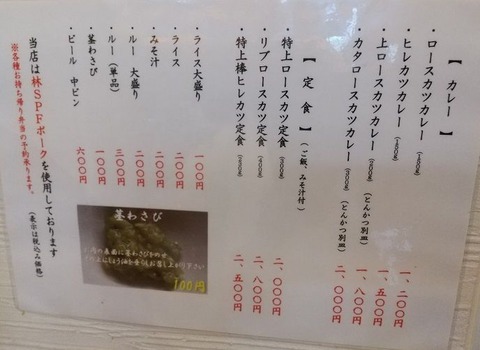 【カレー】
・ロースカツカレー (140g) 一、二〇〇円
・ヒレカツカレー (140g) 一、五〇〇円
・上ロースカツカレー (200g) (とんかつ別皿) 一、八〇〇円
・カタロースカツカレー (200g) (とんかつ別皿) 二、〇〇〇円
【定食】 (ご飯、みそ汁付)
・特上ロースカツ定食 二、〇〇〇円
・リブロースカツ定食 二、八〇〇円
・特上棒ヒレカツ定食 二、五〇〇円
・ライス大盛り 一〇〇円
・ライス 二〇〇円
・みそ汁 二〇〇円
・ルー 大盛り 二〇〇円
・ルー (単品) 三〇〇円
・茎わさび 一〇〇円
・ビール 中ビン 六〇〇円
茎わさび
お肉の表面に茎わさびをのせ
その上にしょう油を垂らしお召し上がり下さい
100円
当店は林SPFポークを使用しております (表示は税込み価格)
※各種お持ち帰り弁当の予約承ります。